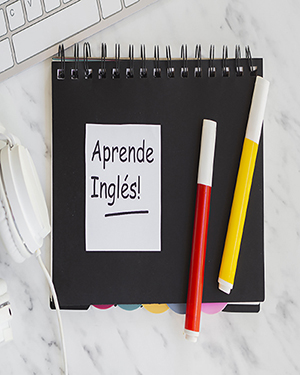 Aprende
Inglés!